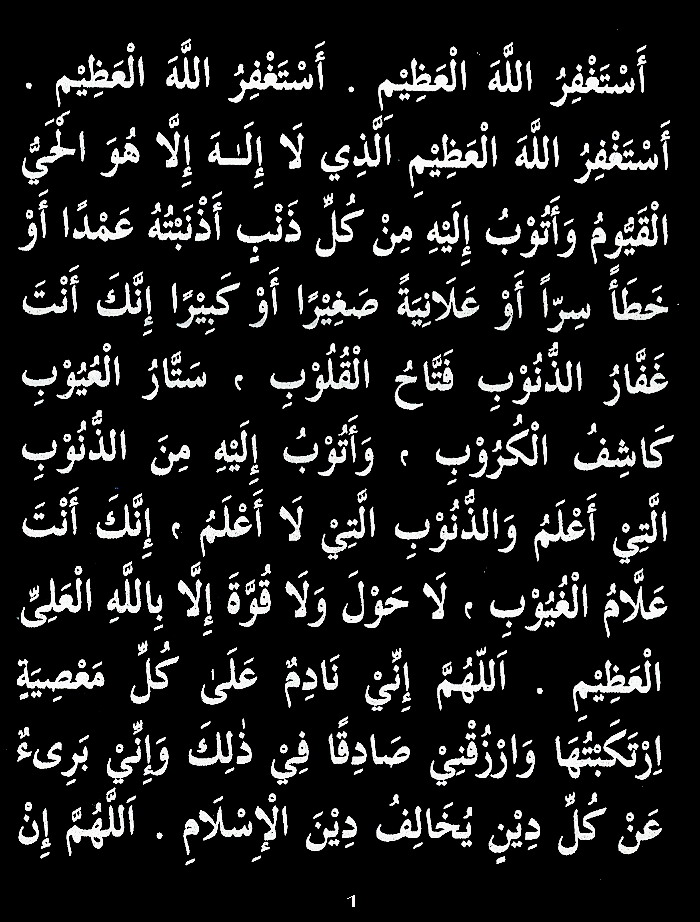 أَسْتَغْفِرُ اللَّهَ الْعَظِيْمِ . أَسْتَغْفِرُ اللَّهَ الْعَظِيْمِ .
أَسْتَغْفِرُ اللَّهَ الْعَظِيْمِ اَلَّذِي لَا إِلَـٰهَ إِلَّا هُوَ الْحَيُّ
الْقَيُّومُ وَأَتُوْبُ إِلَيْهِ مِنْ كُلِّ ذَنْبٍ أَذْنَبْتُهُ عَمْدًا أَوْ
خَطَأً سِرّاً أَوْ عَلَانِيَةً صَغِيْرًا أَوْ كَبِيْرًا إِنَّكَ أَنْتَ
غَفَّارُ الذُّنُوْبِ فَتَّاحُ الْقُلُوْبِ ، سَتَّارُ الْعُيُوْبِ
كَاشِفُ الْكُرُوْبِ ، وَأَتُوْبُ إِلَيْهِ مِنَ الذُّنُوْبِ
الَّتِيْ أَعْلَمُ وَالذُّنُوْبِ الَّتِيْ لَا أَعْلَمُ ، إِنَّكَ أَنْتَ
عَلَّامُ الْغُيُوْبِ ، لَا حَوْلَ وَلَا قُوَّةَ إِلَّا بِاللَّهِ الْعَلِىِّ
الْعَظِيْمِ . اَللّٰهُمَّ إِنِّيْ نَادِمٌ عَلَىٰ كُلِّ مَعْصِيَةٍ
اِرْتَكَبْتُهَا وَارْزُقْنِيْ صَادِقًا فِيْ ذٰلِكَ وَإِنِّيْ بَرِىءٌ
عَنْ كُلِّ دِيْنٍ يُخَالِفُ دِيْنَ الْإِسْلَامِ . اَللّٰهُمَّ إِنْ
1